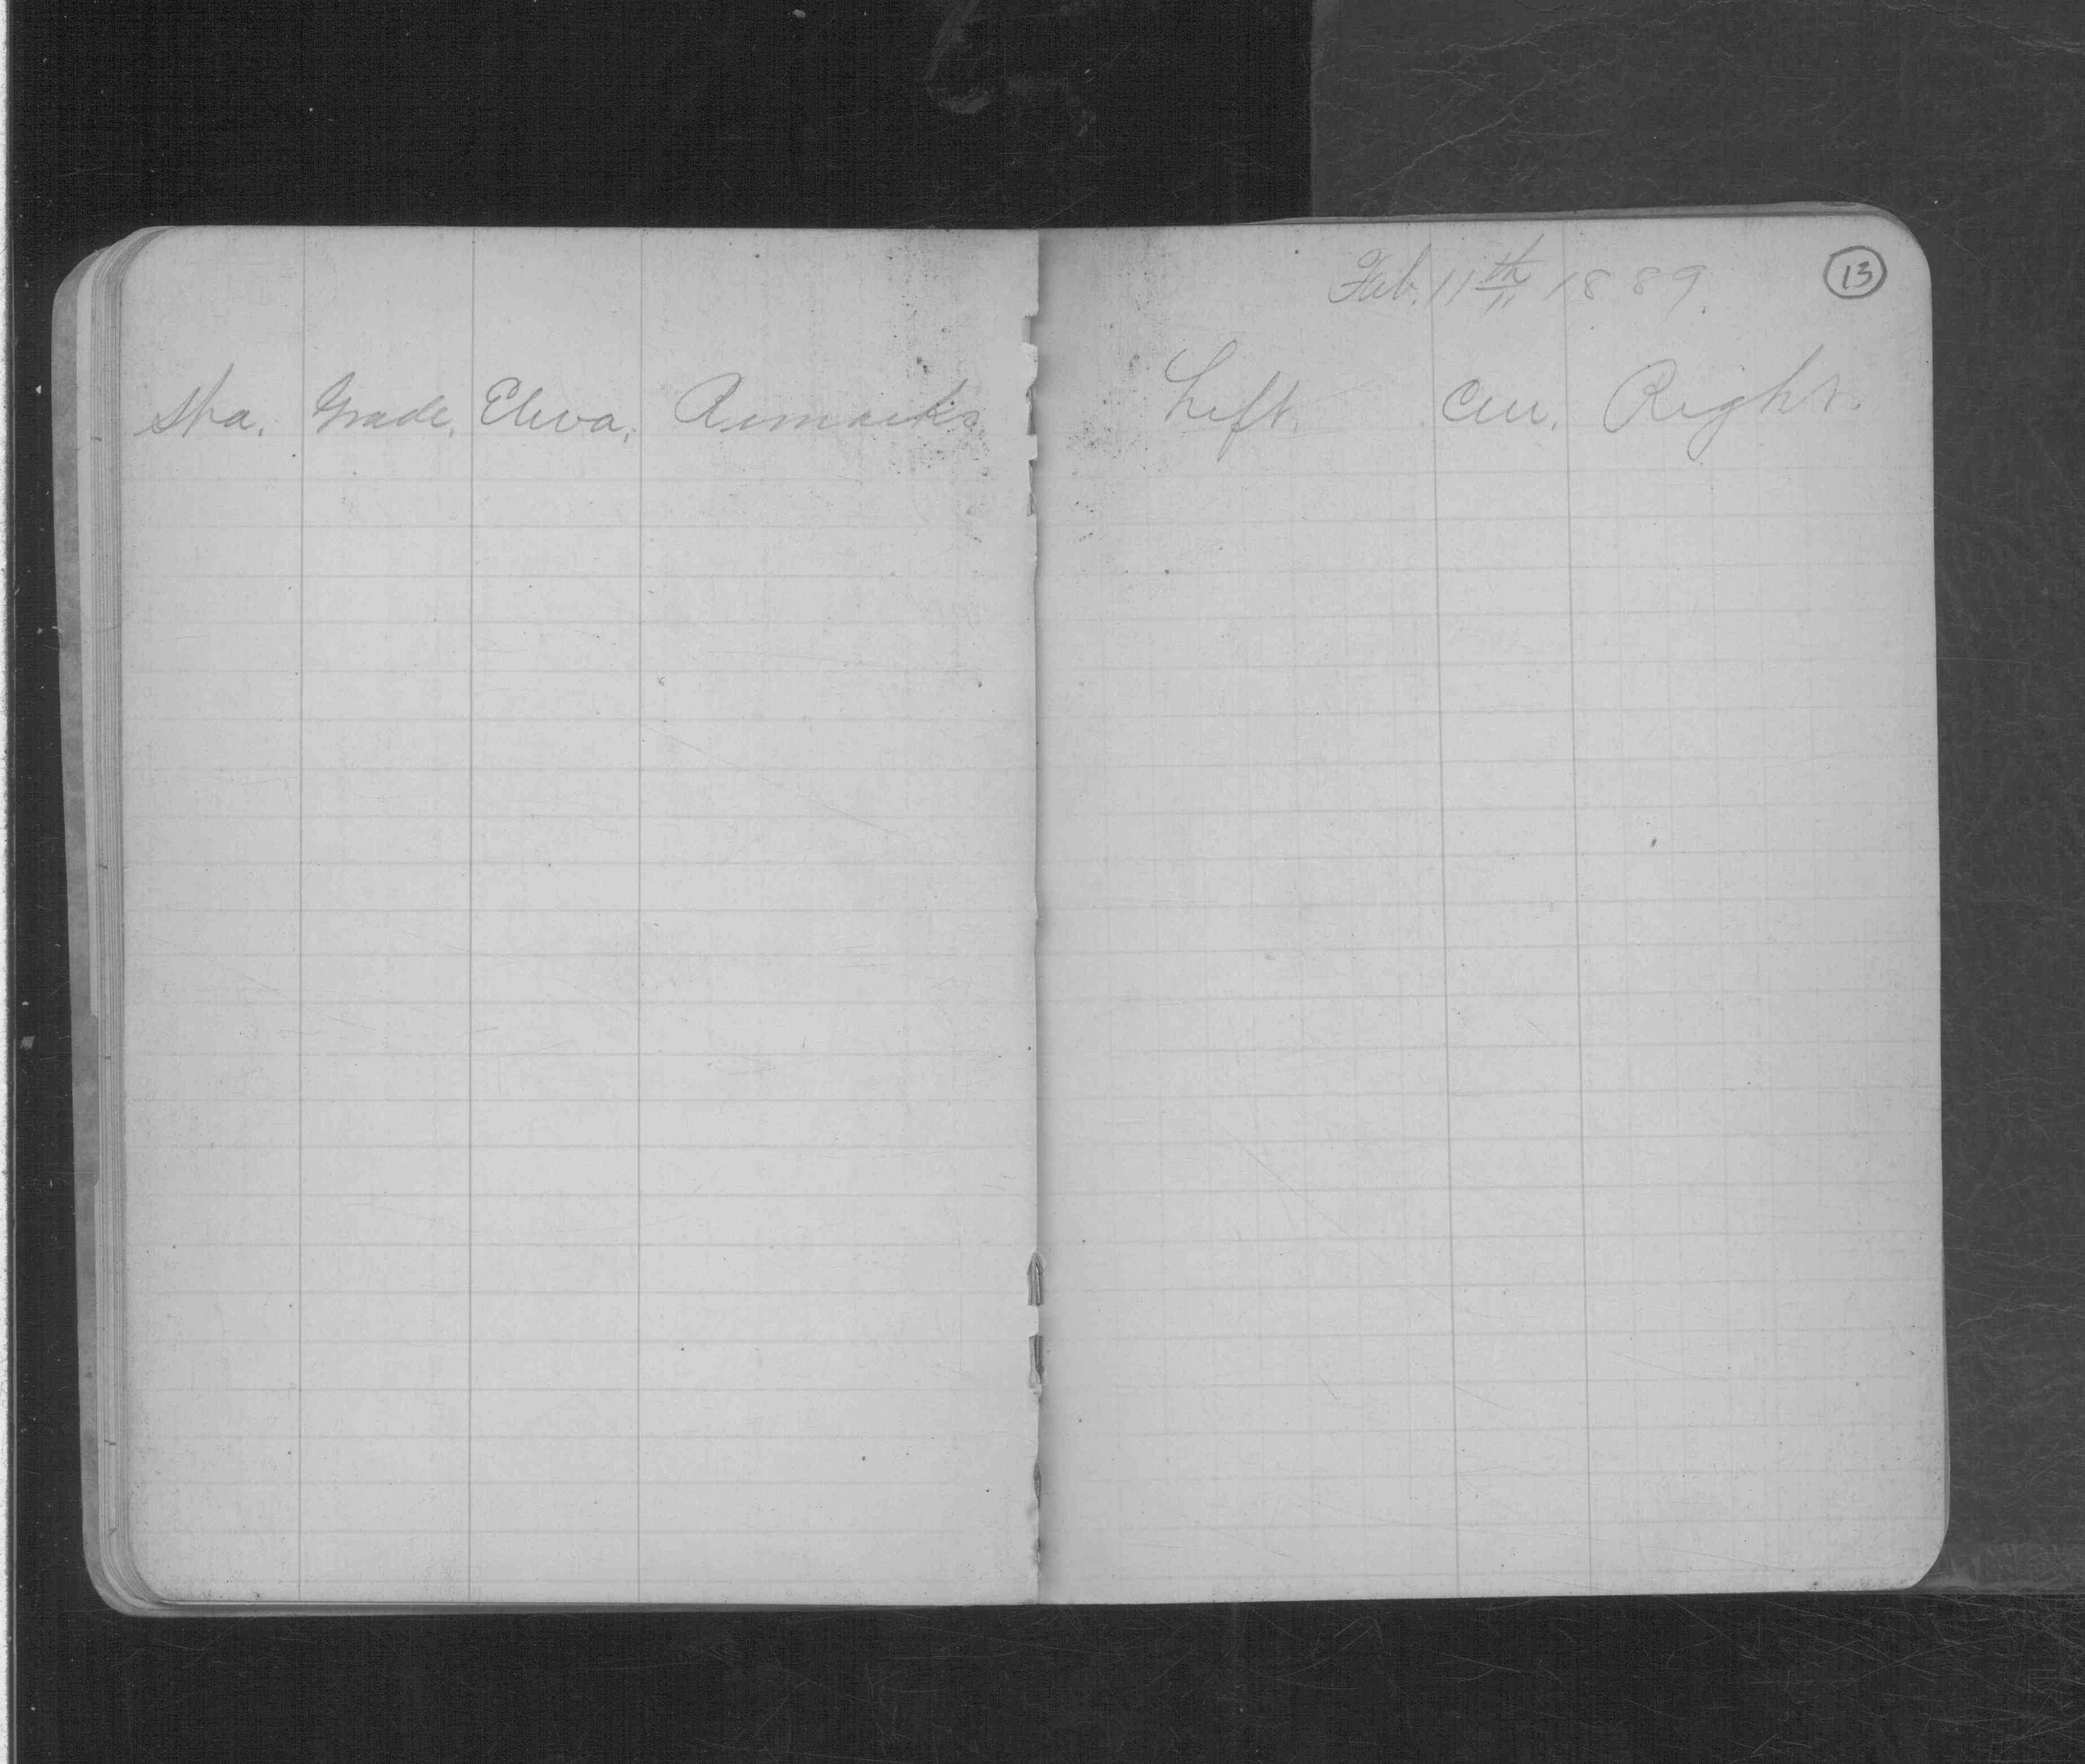 Sta. Grade. Eleva. Remarks.
Feb. 11th 1889.
13
Left. Cen. Right.